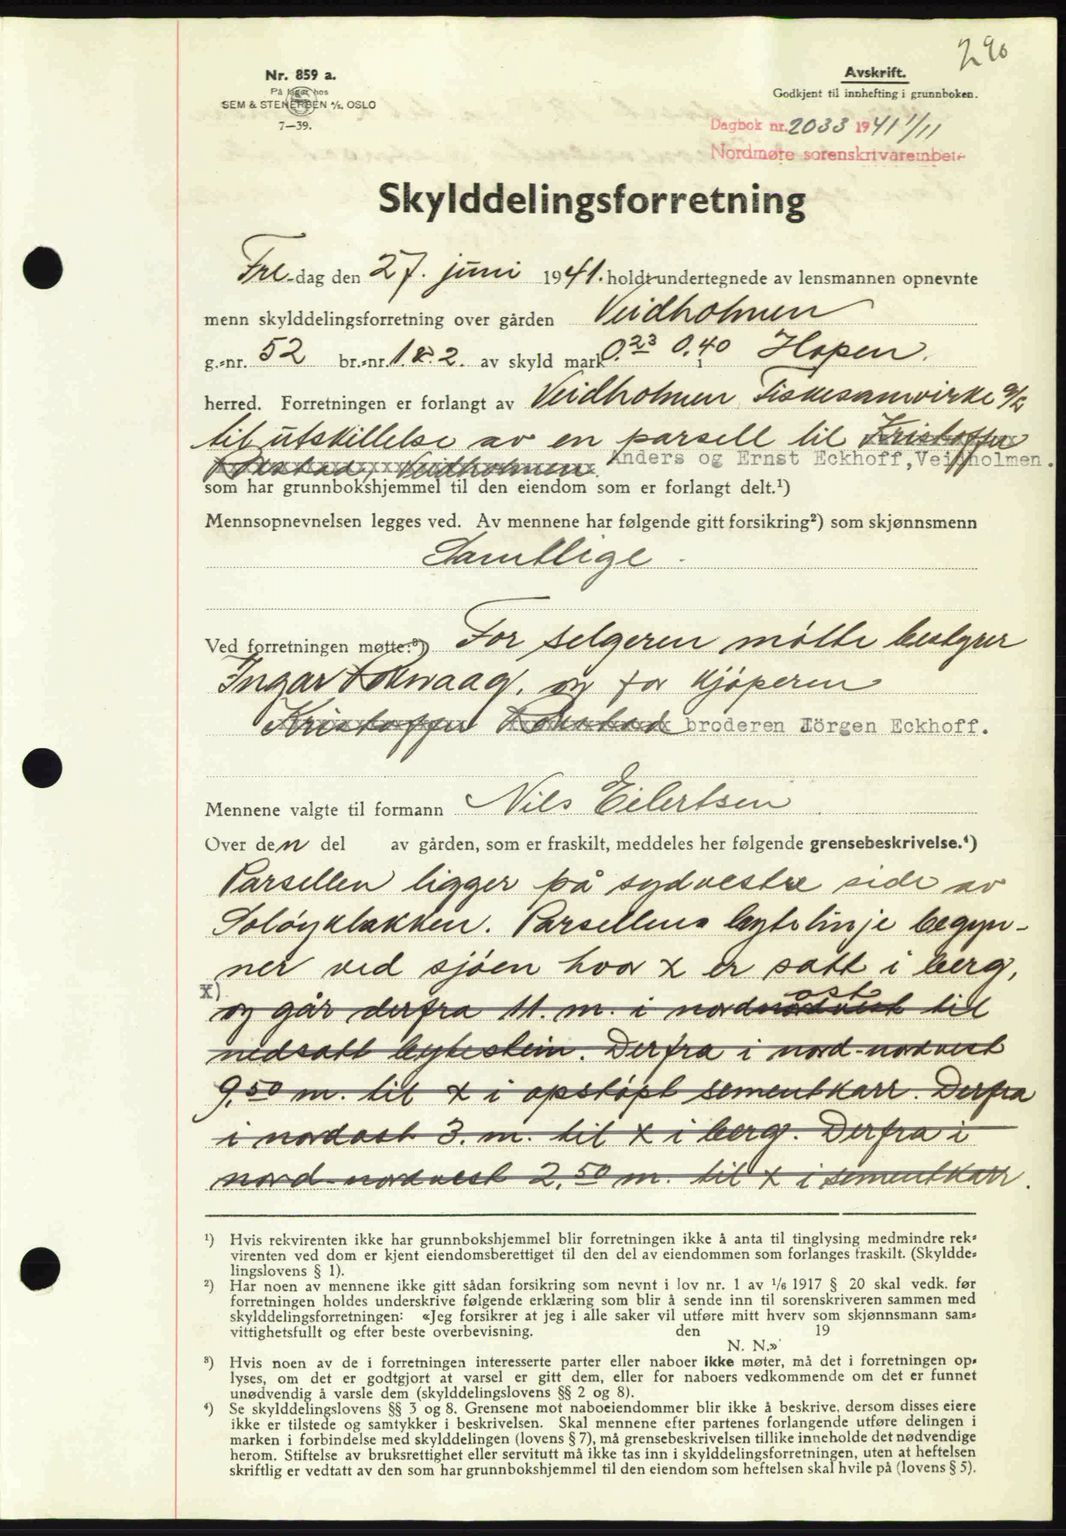 290
Nr. 859 a.
På lager hos
SEM & STENERSEN A/S, OSLO
7—39.
Avskrift.
Godkjent til innhefting i grunnboken.
Dagbok nr. 2033 1941 1/11
Nordmøre sorenskriverembete
Skylddelingsforretning
Fre-dag den 27. juni 1941. holdt undertegnede av lensmannen opnevnte
menn skylddelingsforretning over gården Veidholmen
g.-nr. 52 br.-nr. 1 & 2. av skyld mark 0.23 0.40 i Hopen.
herred. Forretningen er forlangt av Veidholmen Fiskesamvirke A/L
til utskillelse av en parsell til Kristoffer
Rokstad, Veidholmen. Anders og Ernst Eckhoff, Veidholmen.
som har grunnbokshjemmel til den eiendom som er forlangt delt.¹)
Mennsopnevnelsen legges ved. Av mennene har følgende gitt forsikring²) som skjønnsmenn
Samtlige.
Ved forretningen møtte:³) For selgeren møtte bestyrer
Ingar Rokvaag, og for kjøperen
Kristoffer Rokstad broderen Jörgen Eckhoff.
Mennene valgte til formann Nils Eilertsen
Over den del av gården, som er fraskilt, meddeles her følgende grensebeskrivelse.⁴)
Parsellen ligger på sydvestre side av
Soløyklakken. Parsellens bytelinje begyn-
ner ved sjøen hvor x er satt i berg,
x)
og går derfra 11. m. i nordnordvest ost til
nedsatt bytestein. Derfra i nord-nordvest
9,50 m. til x i opstøpt sementkarr. Derfra
i nordost 3. m. til x i berg. Derfra i
nord-nordvest 2,50 m. til x i sementkarr.
¹) Hvis rekvirenten ikke har grunnbokshjemmel blir forretningen ikke å anta til tinglysing medmindre rek-
virenten ved dom er kjent eiendomsberettiget til den del av eiendommen som forlanges fraskilt. (Skyldde-
lingslovens § 1).
²) Har noen av mennene ikke gitt sådan forsikring som nevnt i lov nr. 1 av 1/6 1917 § 20 skal vedk. før
forretningen holdes underskrive følgende erklæring som blir å sende inn til sorenskriveren sammen med
skylddelingsforretningen: «Jeg forsikrer at jeg i alle saker vil utføre mitt hverv som skjønnsmann sam-
vittighetsfullt og efter beste overbevisning. den 19
N. N.»
³) Hvis noen av de i forretningen interesserte parter eller naboer ikke møter, må det i forretningen op-
lyses, om det er godtgjort at varsel er gitt dem, eller for naboers vedkommende om det er funnet
unødvendig å varsle dem (skylddelingslovens §§ 2 og 8).
⁴) Se skylddelingslovens §§ 3 og 8. Grensene mot naboeiendommer blir ikke å beskrive, dersom disses eiere
ikke er tilstede og samtykker i beskrivelsen. Skal mennene efter partenes forlangende utføre delingen i
marken i forbindelse med skylddelingen (lovens § 7), må grensebeskrivelsen tillike inneholde det nødvendige
herom. Stiftelse av bruksrettighet eller servitutt må ikke tas inn i skylddelingsforretningen, uten at heftelsen
skriftlig er vedtatt av den som har grunnbokshjemmel til den eiendom som heftelsen skal hvile på (lovens § 5).